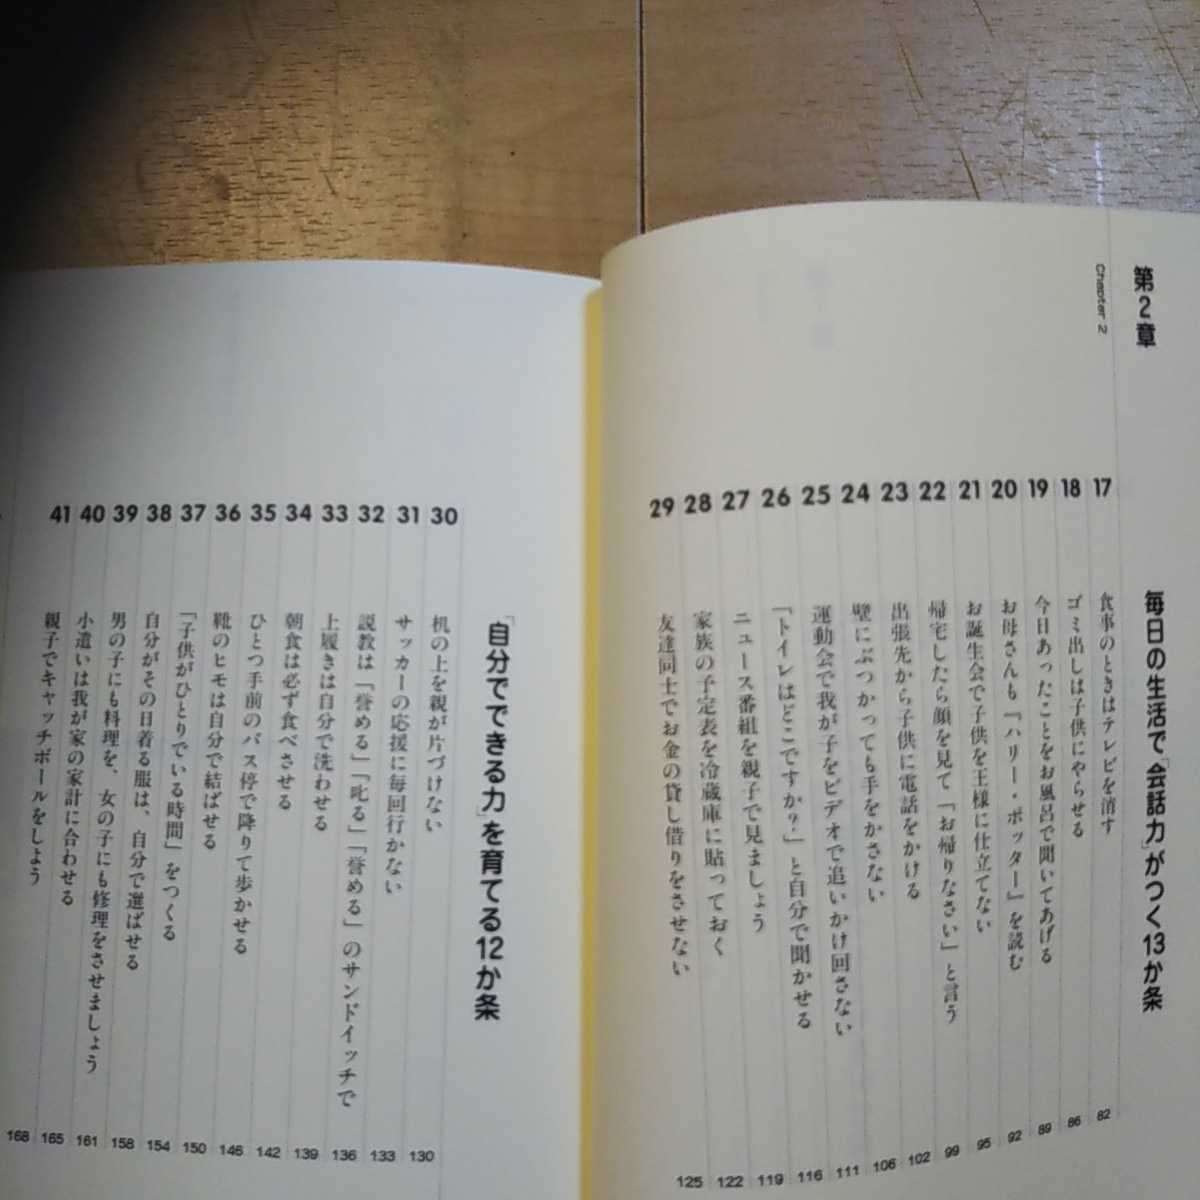 第2章
Chapter 2
毎日の生活で「会話力」がつく13か条
17 食事のときはテレビを消す 82
18 ゴミ出しは子供にやらせる 86
19 今日あったことをお風呂で聞いてあげる 89
20 お母さんも『ハリー・ポッター』を読む 92
21 お誕生会で子供を王様に仕立てない 95
22 帰宅したら顔を見て「お帰りなさい」と言う 99
23 出張先から子供に電話をかける 102
24 壁にぶつかっても手をかさない 106
25 運動会で我が子をビデオで追いかけ回さない 111
26 「トイレはどこですか？」と自分で聞かせる 116
27 ニュース番組を親子で見ましょう 119
28 家族の予定表を冷蔵庫に貼っておく 122
29 友達同士でお金の貸し借りをさせない 125
「自分でできる力」を育てる12か条
30 机の上を親が片づけない 130
31 サッカーの応援に毎回行かない 133
32 説教は「誉める」「叱る」「誉める」のサンドイッチで 136
33 上履きは自分で洗わせる 139
34 朝食は必ず食べさせる 142
35 ひとつ手前のバス停で降りて歩かせる 146
36 靴のヒモは自分で結ばせる 150
37 「子供がひとりでいる時間」をつくる 154
38 自分がその日着る服は、自分で選ばせる 158
39 男の子にも料理を、女の子にも修理をさせましょう 161
40 小遣いは我が家の家計に合わせる 165
41 親子でキャッチボールをしよう 168